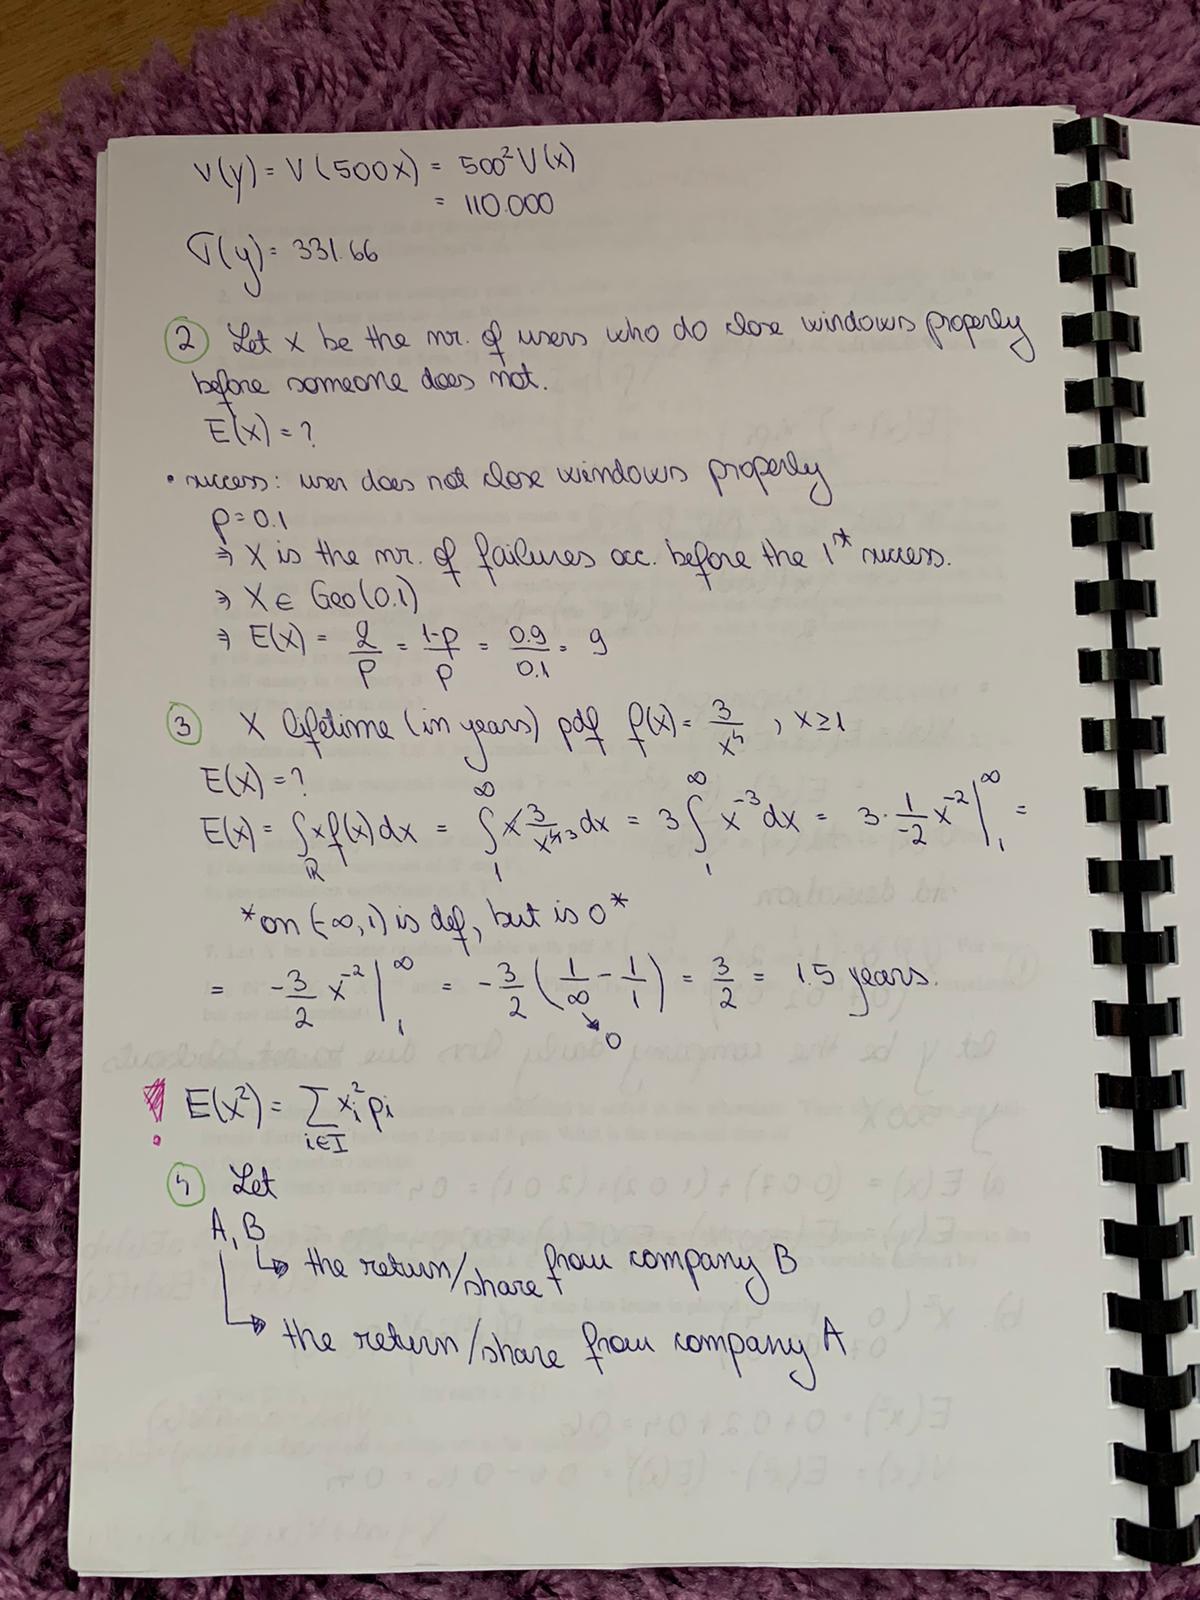 V(y) = V(500x) = 500² V(x)
= 110.000
σ(y) = 331.66
② Let x be the nr. of users who do close windows properly
before someone does not.
E(x) = ?
• success: user does not close windows properly
p = 0.1
⇒ X is the nr. of failures occ. before the 1st success.
⇒ X ∈ Geo(0.1)
⇒ E(x) = q/p = 1-p/p = 0.9/0.1 = 9
③ X lifetime (in years) pdf f(x) = 3/x⁴, x ≥ 1
E(x) = ?
E(x) = ∫_ℝ x f(x) dx = ∫_1^∞ x 3/x⁴³ dx = 3 ∫_1^∞ x⁻³ dx = 3 · 1/-2 x⁻² |_1^∞ =
*on (-∞, 1) is def, but is 0*
= -3/2 x⁻² |_1^∞ = -3/2 (1/∞ - 1/1) = 3/2 = 1.5 years.
↘ 0
! E(x²) = Σ_{i∈I} xᵢ² pᵢ
④ Let
A, B
↳ the return/share from company B
↳ the return/share from company A